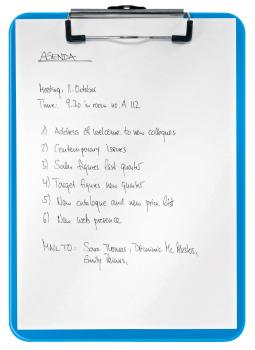 AGENDA
Meeting, 11. October
Time: 9.30 in room no. A 112
1) Address of welcome to new colleagues
2) Contemporary Issues
3) Sales figures last quarter
4) Target figures new quarter
5) New catalogue and new price list
6) New web presence
MAIL TO: Sara Thomas, Dominic Mc
Emily